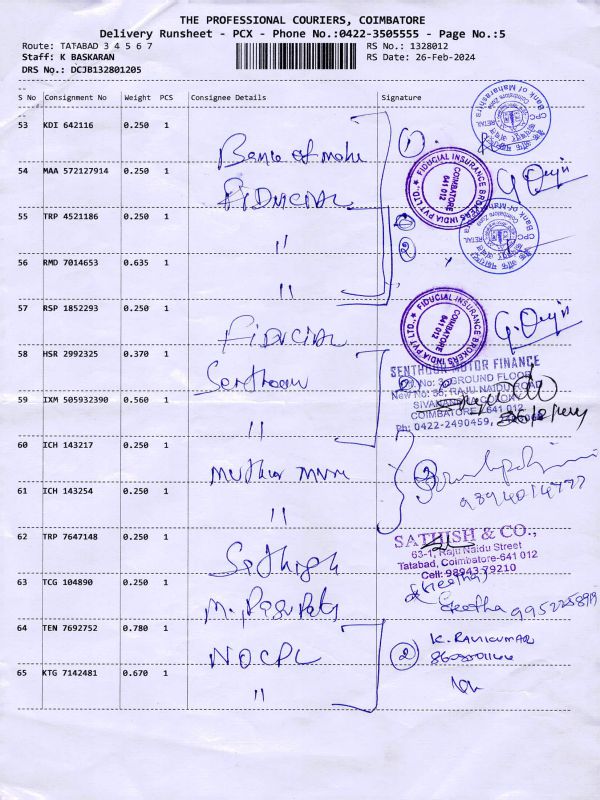 THE PROFESSIONAL COURIERS, COIMBATORE
Delivery Runsheet - PCX - Phone No.:0422-3505555 - Page No.:5
Route: TATABAD 3 4 5 6 7 RS No.: 1328012
Staff: K BASKARAN RS Date: 26-Feb-2024
DRS No.: DCJB132801205
S No Consignment No Weight PCS Consignee Details Signature
53 KDI 642116 0.250 1
Bank of Maha
54 MAA 572127914 0.250 1
FIDUCIAL
FIDUCIAL INSURANCE BROKERS INDIA PVT LTD.,
COIMBATORE
641 012
55 TRP 4521186 0.250 1
"
56 RMD 7014653 0.635 1
"
57 RSP 1852293 0.250 1
FIDUCIAL
FIDUCIAL INSURANCE BROKERS INDIA PVT LTD.,
COIMBATORE
641 012
58 HSR 2992325 0.370 1
SENTHOOR MOTOR FINANCE
GROUND FLOOR
RAJU NAIDU ROAD
COIMBATORE - 641 012
Ph: 0422-2490459,
59 IXM 505932390 0.560 1
"
60 ICH 143217 0.250 1
61 ICH 143254 0.250 1
"
62 TRP 7647148 0.250 1
SATHISH & CO.,
63-1, Raju Naidu Street
Tatabad, Coimbatore-641 012
Cell: 98943 79210
63 TCG 104890 0.250 1
Geetha
64 TEN 7692752 0.780 1
NOCPL
2 K. RAVIKUMAR
65 KTG 7142481 0.670 1
"